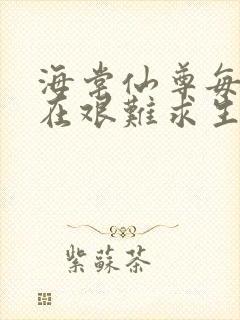 海棠仙尊每
在艰難求生
紫蘇茶